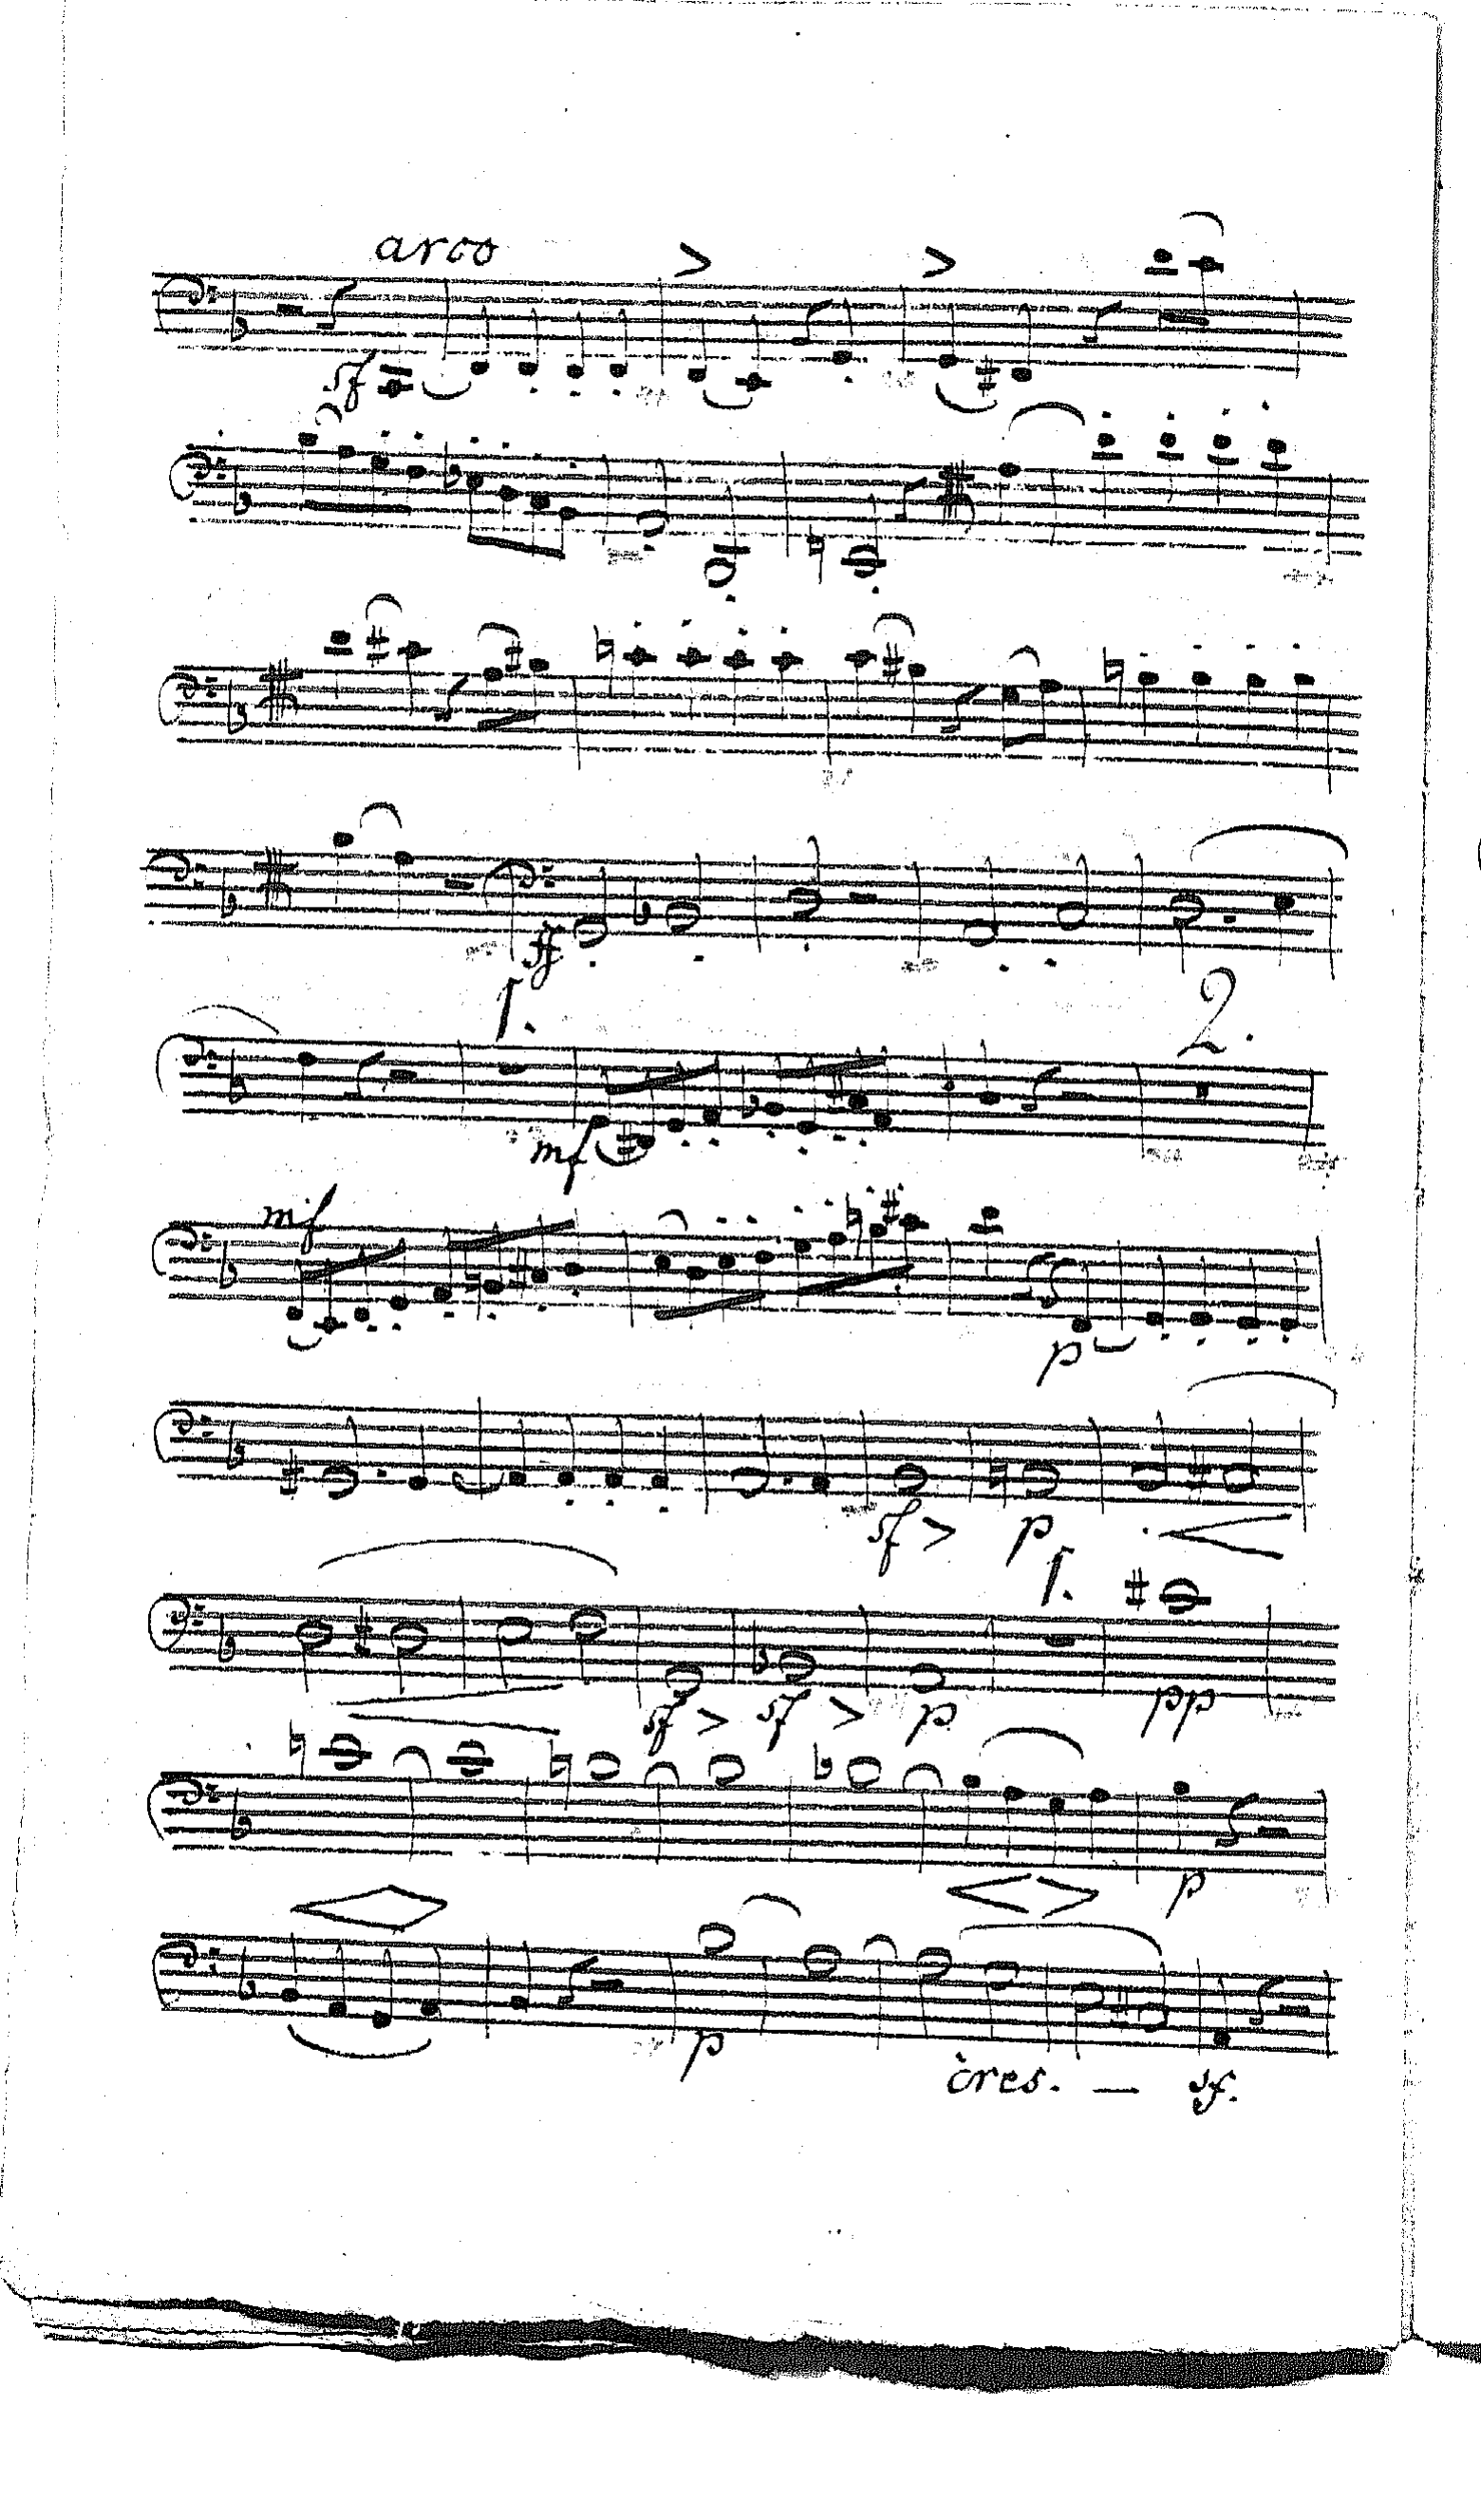 arco
sf
ff
1.
2.
mf
mf
p
sf p
1.
sf sf p pp
p
p
cres. — sf.